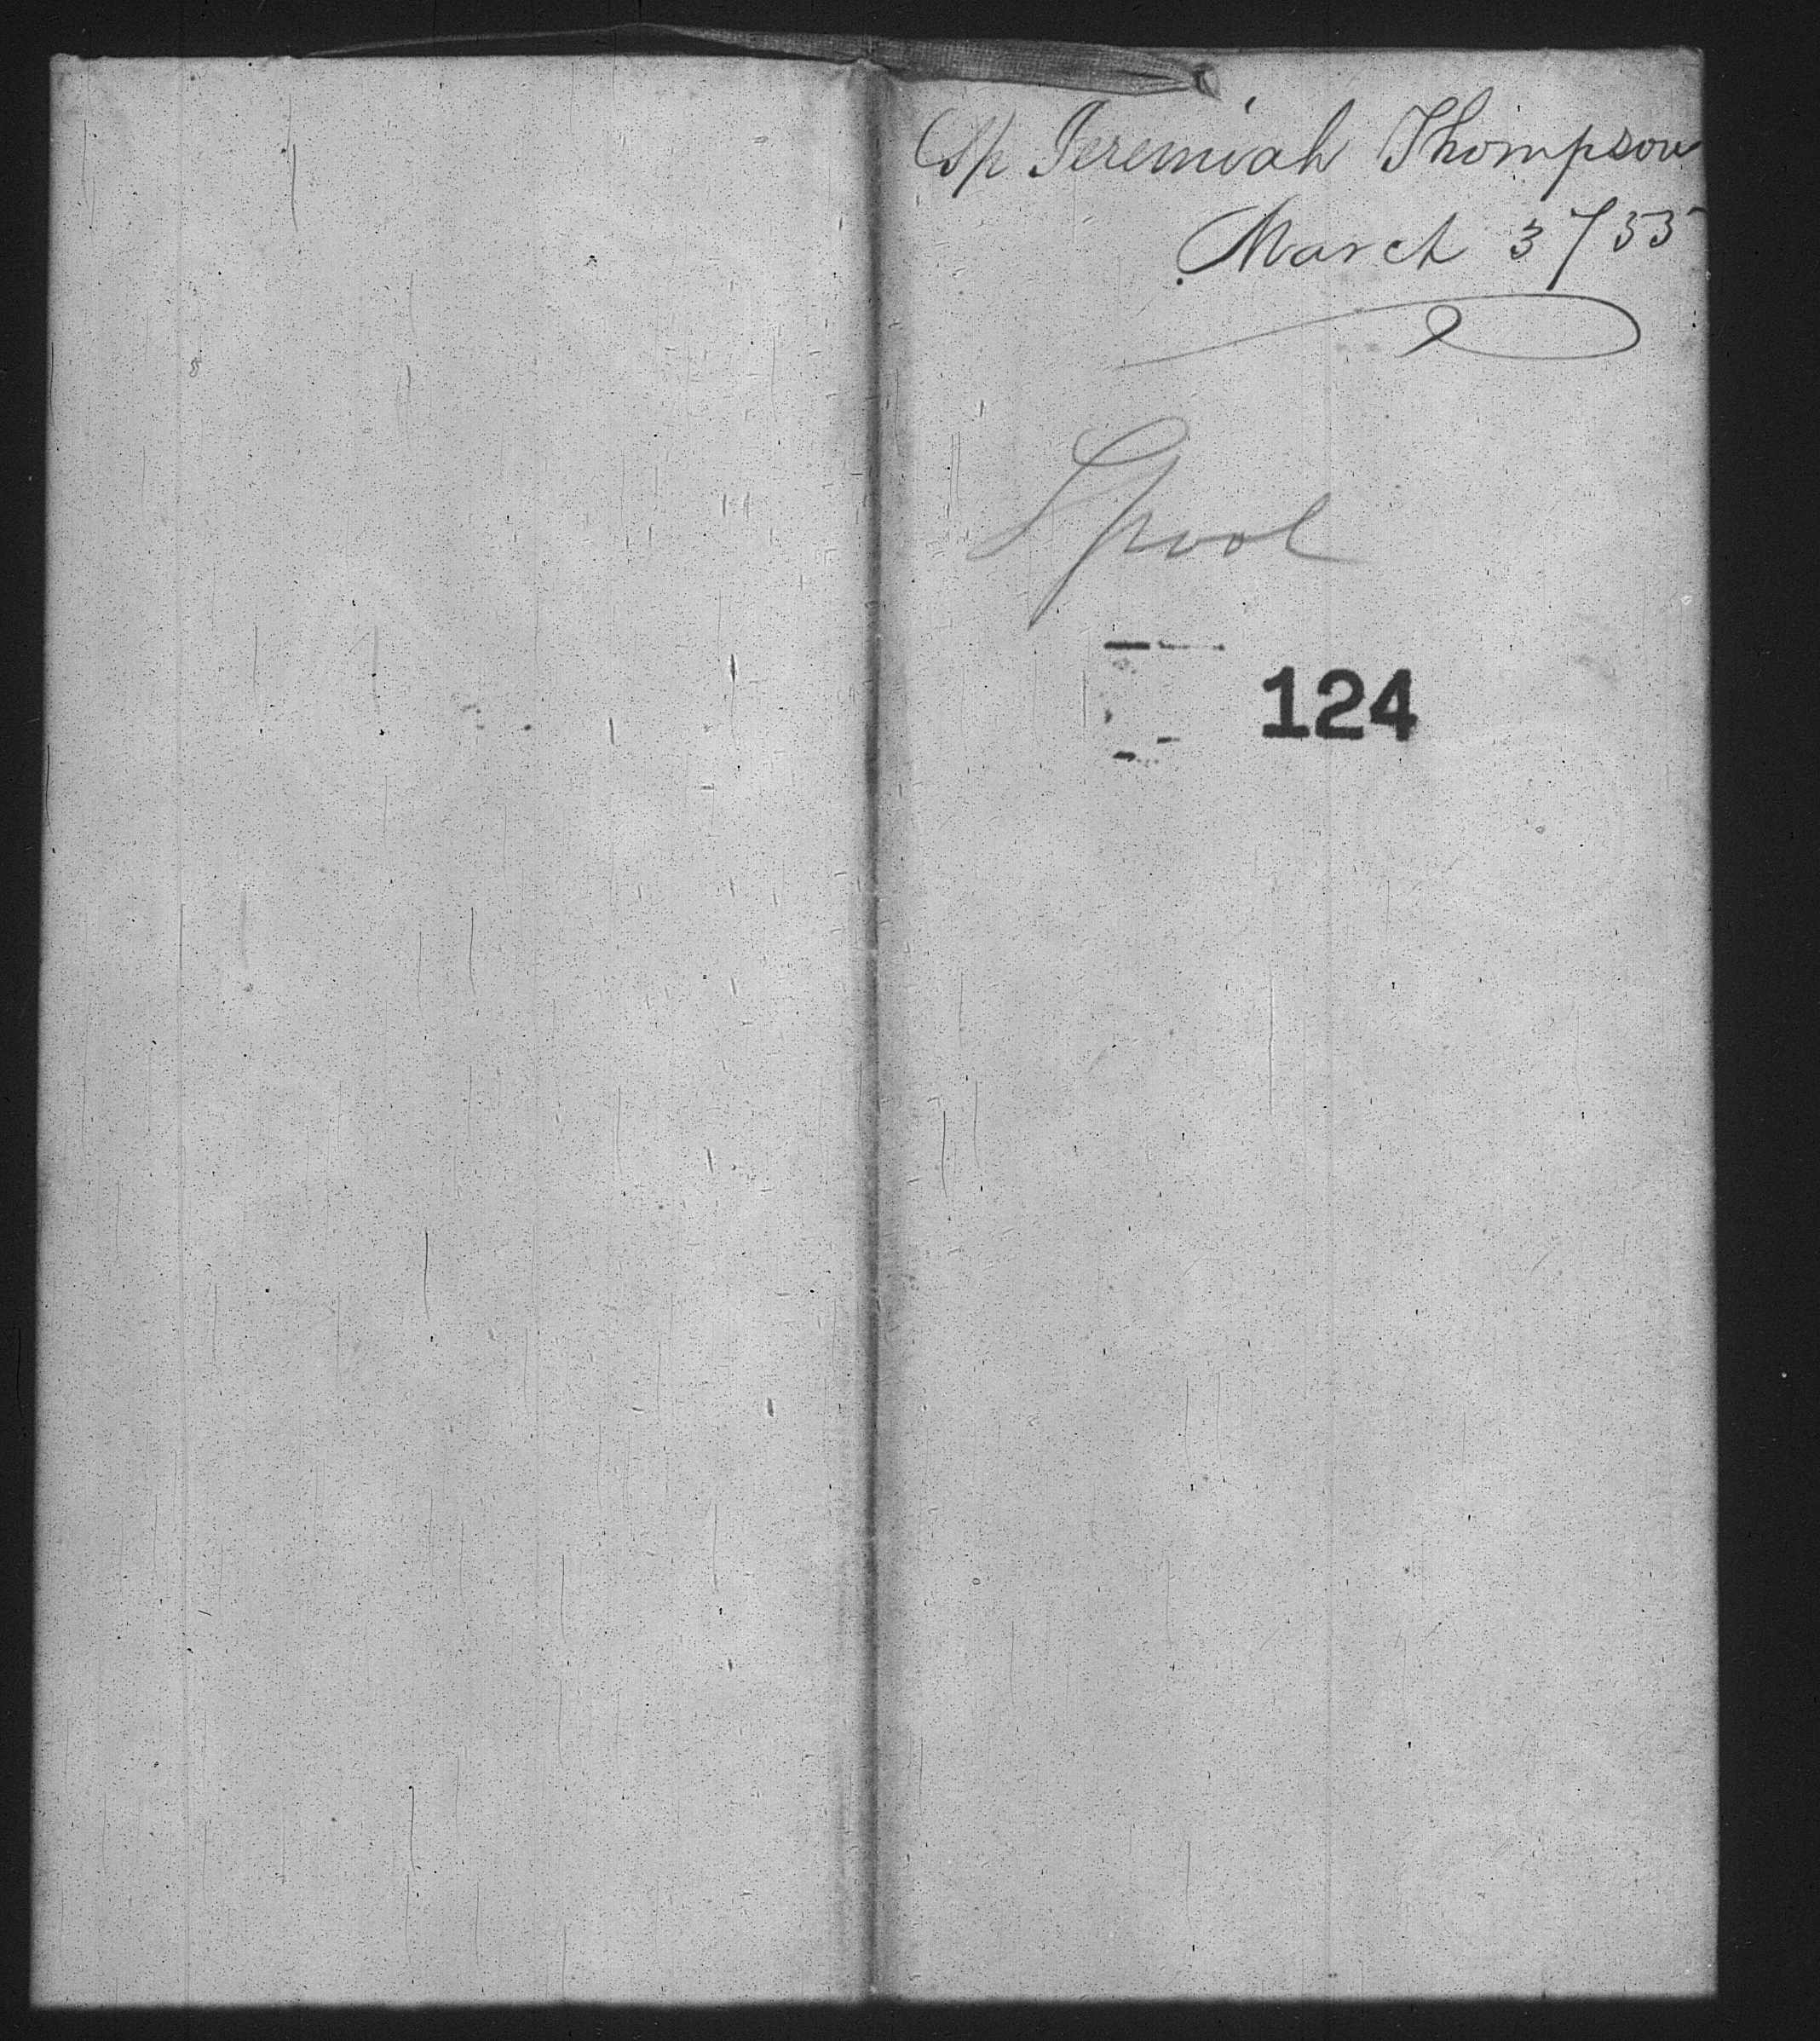 Sp Jeremiah Thompson
March 3/55
Lpool
124